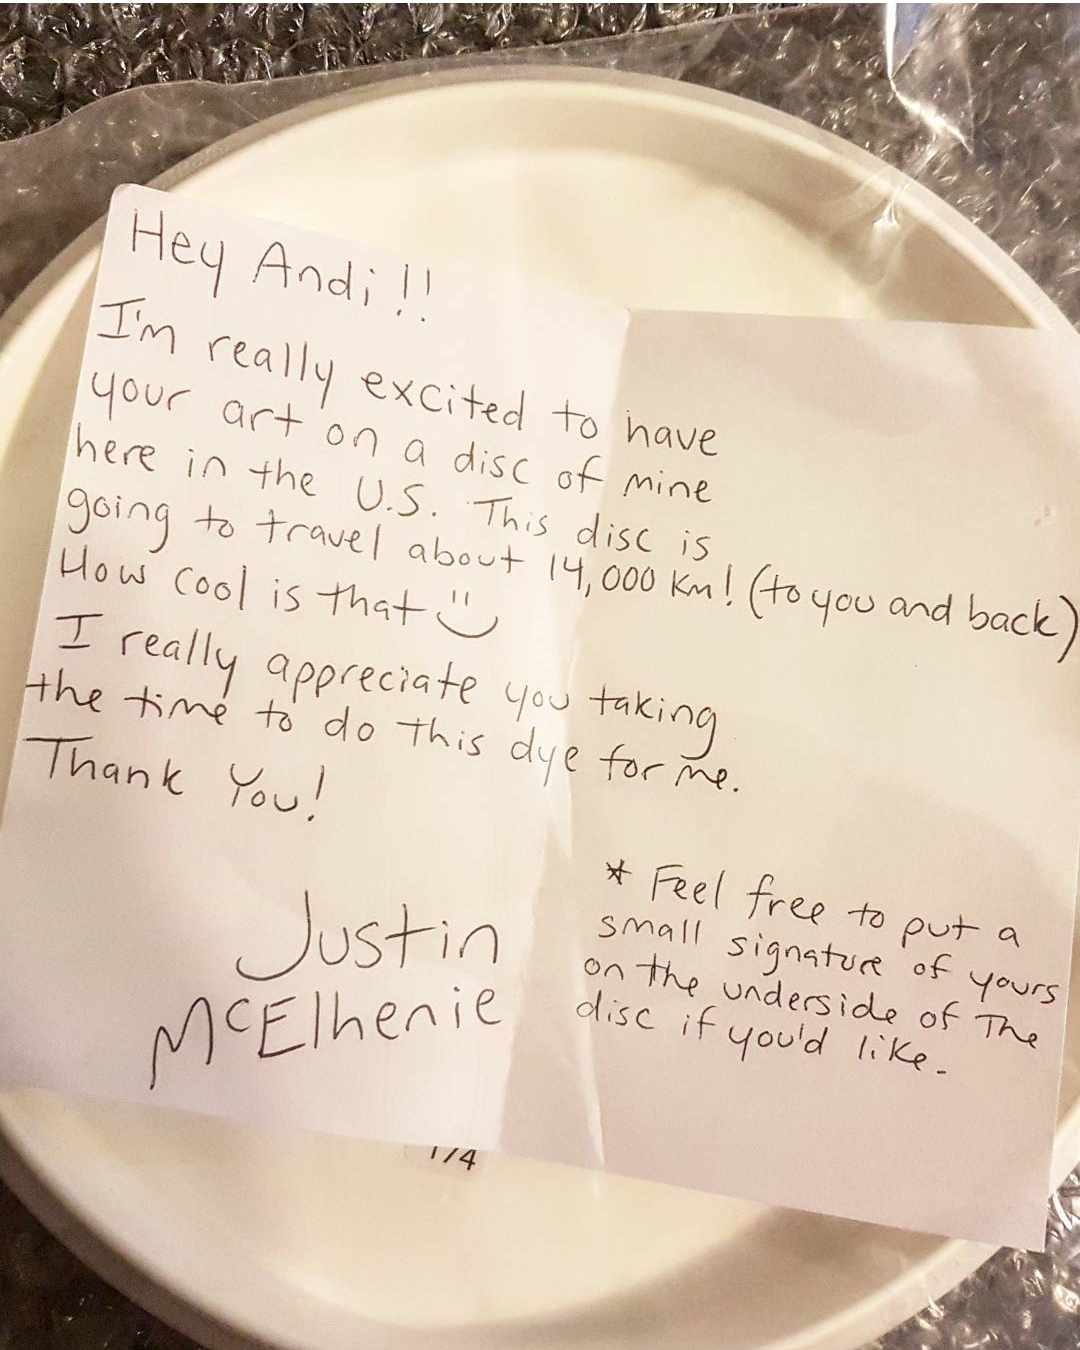 Hey Andi!!
I'm really excited to have
your art on a disc of mine
here in the U.S. This disc is
going to travel about 14,000 Km! (to you and back)
How cool is that
I really appreciate you taking
the time to do this dye for me.
Thank You!
Justin
McElhenie
* Feel free to put a
small signature of yours
on the underside of The
disc if you'd like.
174